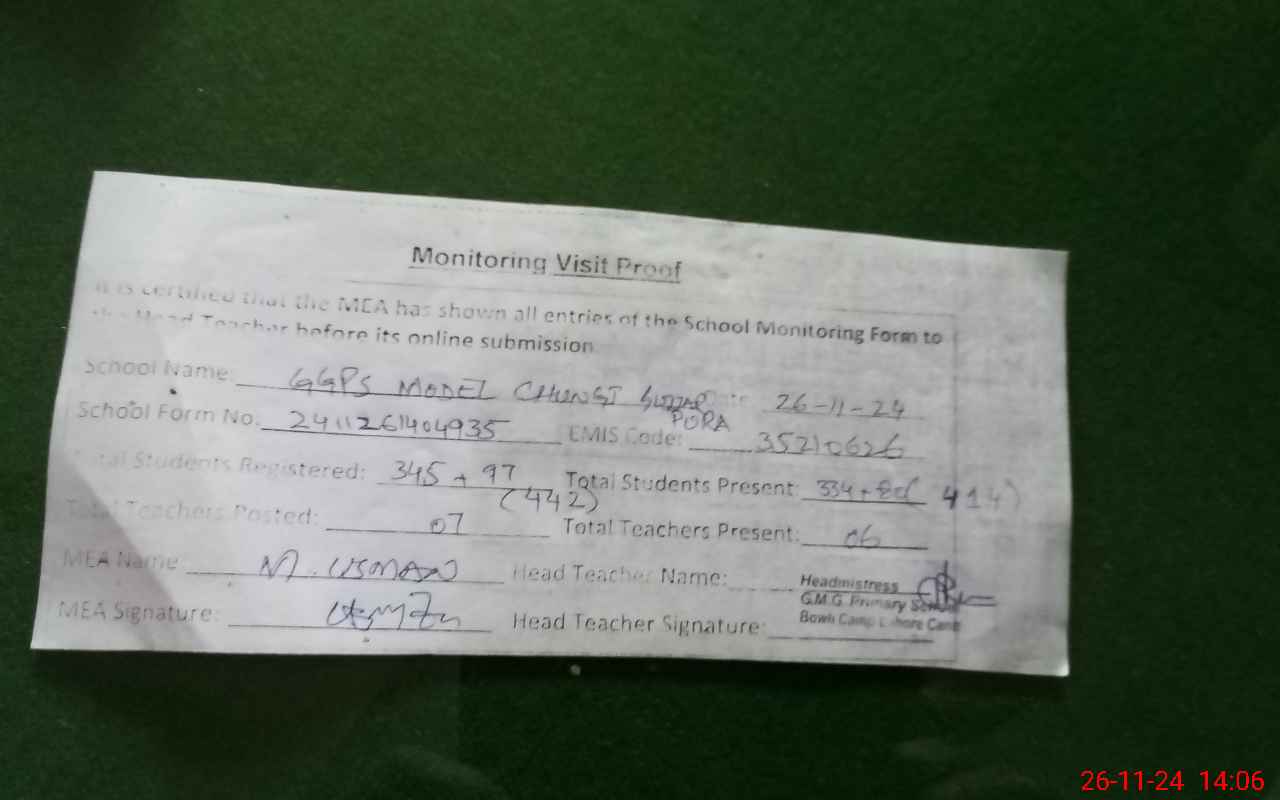 Monitoring Visit Proof
It is certified that the MEA has shown all entries of the School Monitoring Form to
the Head Teacher before its online submission
School Name: GGPS MODEL CHUNGI Date 26-11-24
PORA
School Form No: 2411261404935 EMIS Code: 35210626
Total Students Registered: 345 + 97 Total Students Present: 334 + 80 ( 414)
(442)
Total Teachers Posted: 07 Total Teachers Present: 06
MEA Name: M. USMAN Head Teacher Name:
Headmistress
G.M.G. Primary School
Camp Lahore Cantt
MEA Signature: Head Teacher Signature:
26-11-24 14:06